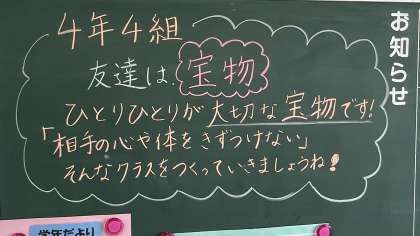 お知らせ
4年4組
友達は宝物
ひとりひとりが大切な宝物です!
「相手の心や体をきずつけない」
そんなクラスをつくっていきましょうね!
学年だより